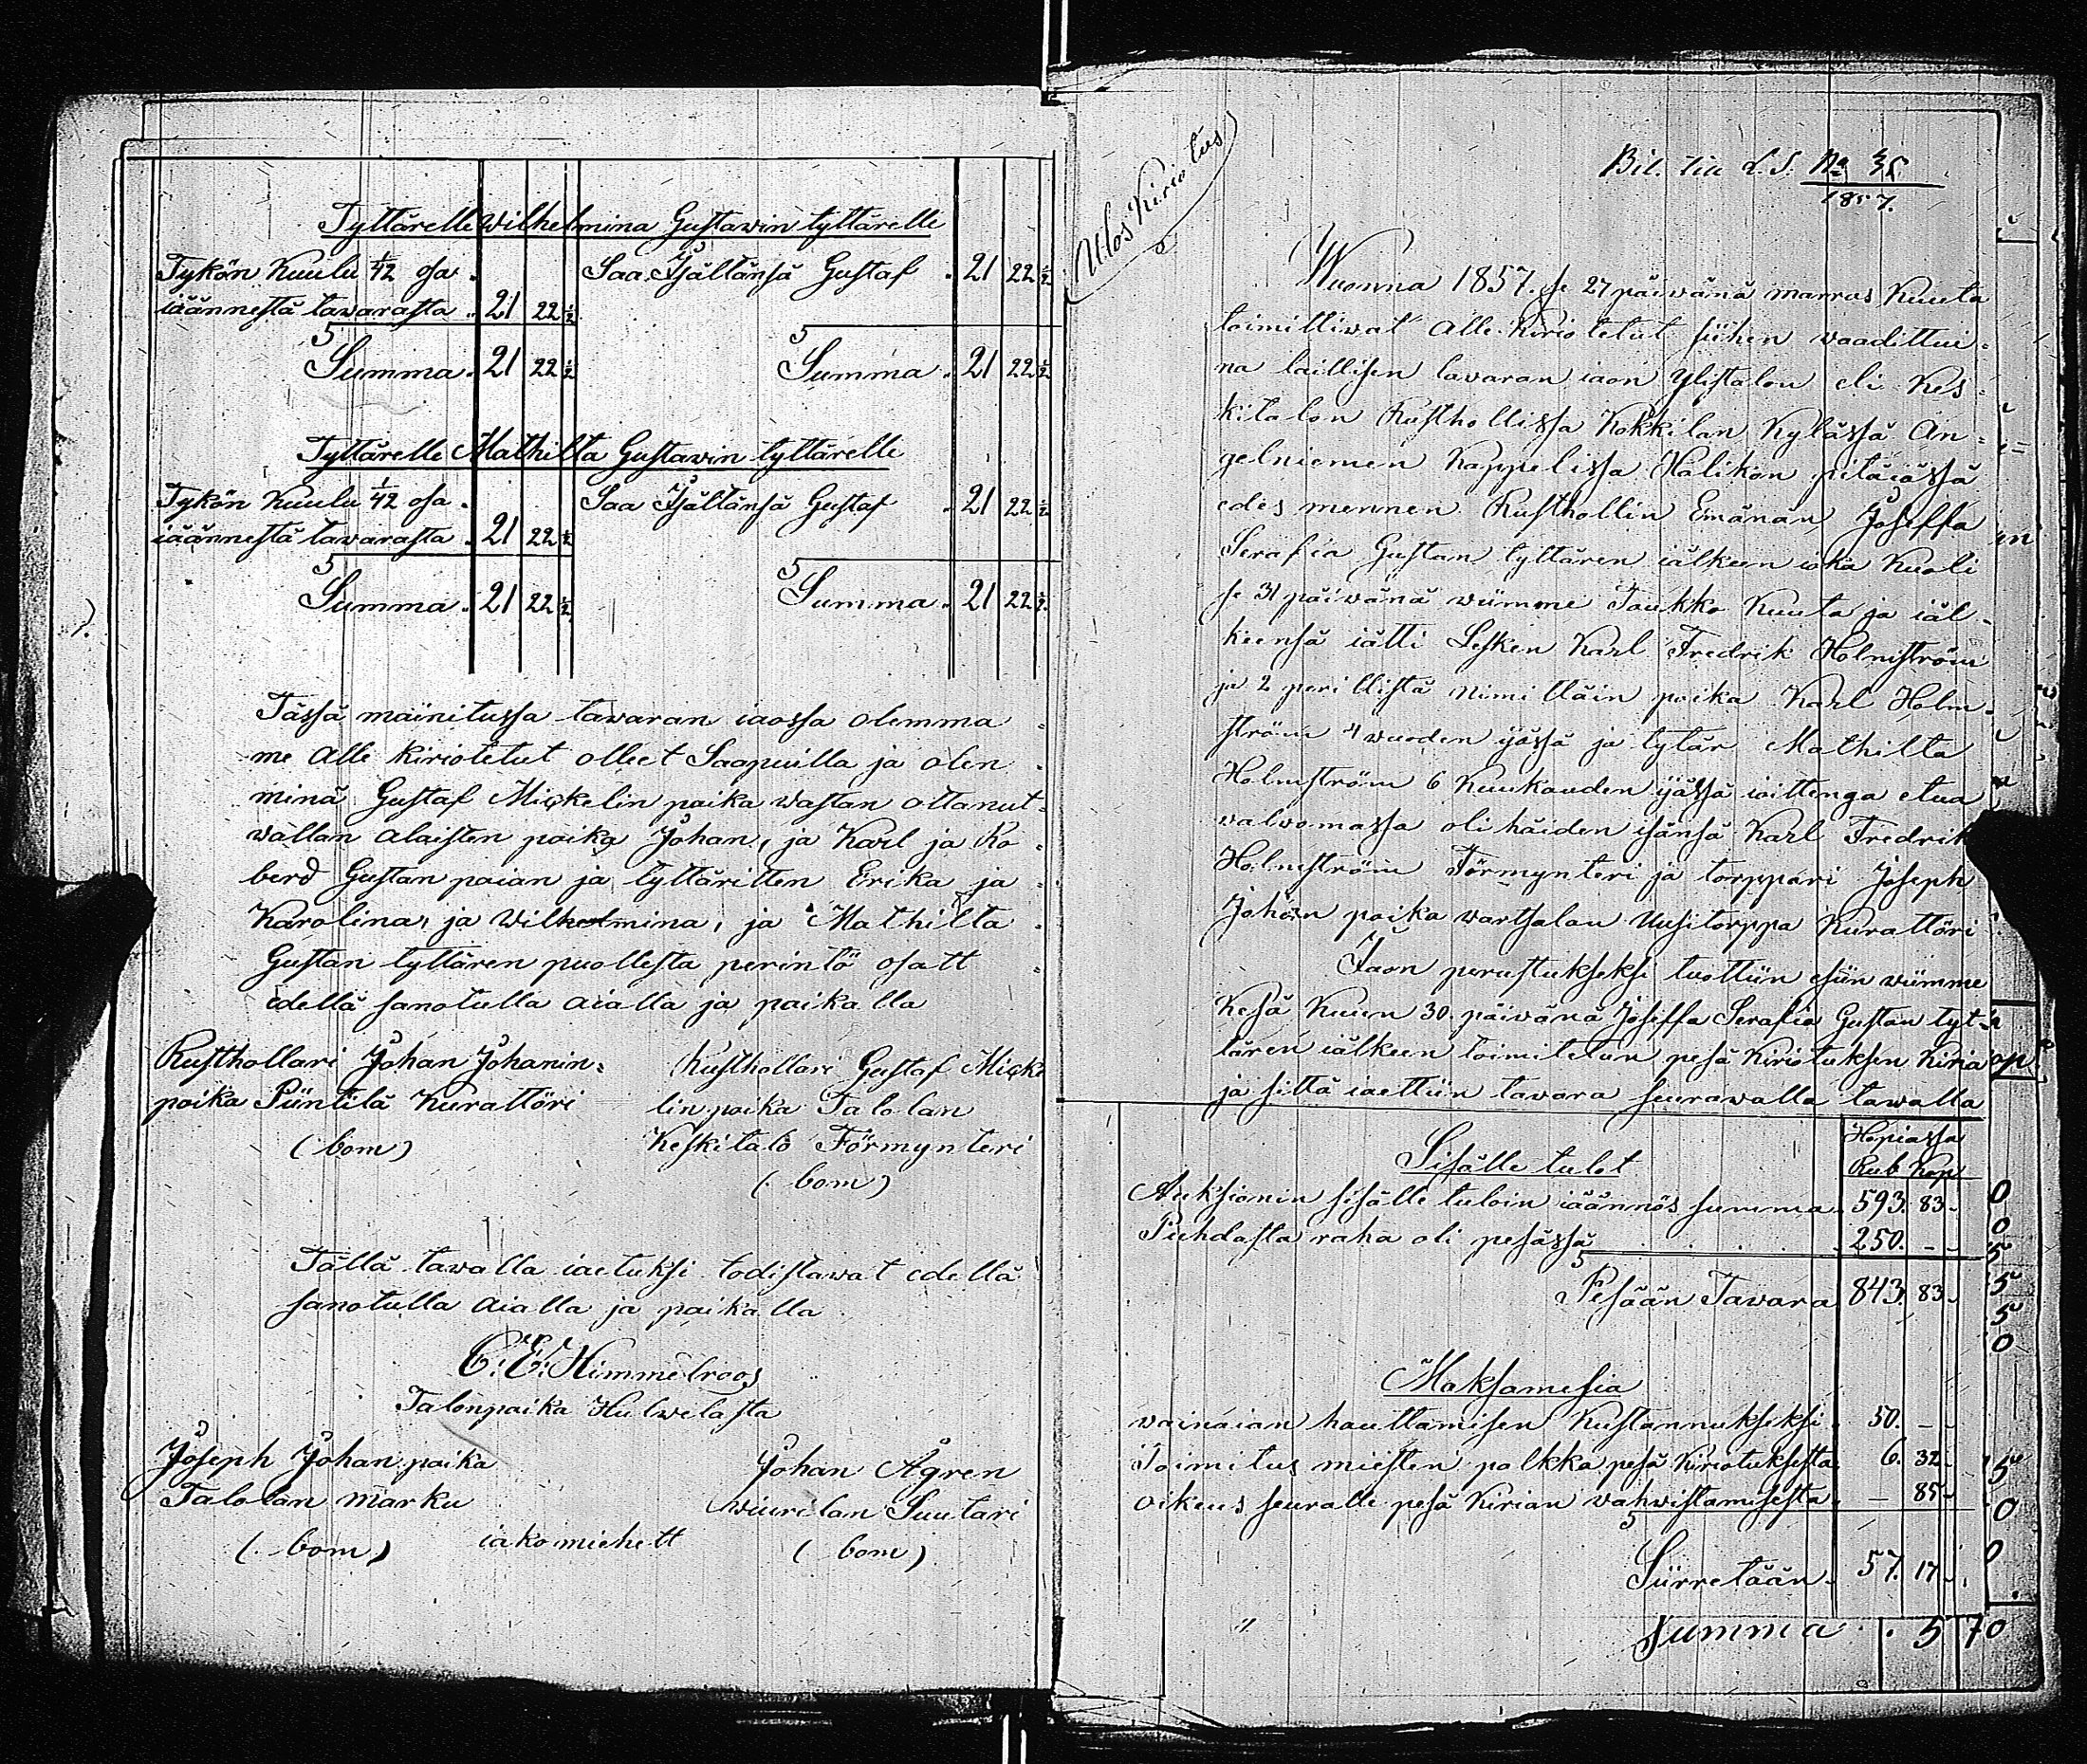 Tyttärelle Wilhelmina Gustawin tyttärelle
Tykön Kuulu 1/42 osa
iäännestä tawarasta 21 22 1/2
Summa 21 22 1/2
Saa Isältänsä Gustaf 21 22 1/2
Summa 21 22 1/2
Tyttärelle Mathilta Gustawin tyttärelle
Tykön Kuulu 1/42 osa
iäännestä tawarasta 21 22 1/2
Summa 21 22 1/2
Saa Isältänsä Gustaf 21 22 1/2
Summa 21 22 1/2
Tässä mainitussa tawaran iaossa olemma
me alle kiriotetut olleet Saapuilla ja olen
minä Gustaf Mickelin poika wastan ottanut
wallan alaisten poika Johan, ja Karl ja Ro
berd Gustan poian ja tyttäritten Erika ja
Karolina, ja Wilhelmina, ja Mathilta
Gustan tyttären puollesta perintö osatt
edellä sanotulla aialla ja paikalla
Rusthollari Johan Johanin
poika Piintilä Kurattöri
(bom)
Rusthollari Gustaf Micke
lin poika Talolan
Keskitalo Förmynteri
(bom)
Tällä tawalla iaetuksi todistawat edellä
sanotulla aialla ja paikalla
C. E. Himmelroos
Talonpoika Hulwelasta
Joseph Johan poika
Talolan marku
(bom)
iakomiehett
Johan Ågren
wiurilan Suutari
(bom)
Ulos Kiriotus
Bil. till L. S. No
1857.
Wuonna 1857. se 27 päiwänä marras Kuuta
toimittiwat alle Kiriotetut siihen waadittui
na laillisen tavaran iaon Ylistalon eli Kes
kitalon Rusthollissa Kokkilan Kylässä An
gelniemen Kappelissa Halikon pitäiässä
edes mennen Rusthollin Emänän Joseffa
Serafia Gustan tyttären iälkeen ioka Kuoli
se 31 päiwänä wiimme Toukko Kuuta ja iäl
keensä iätti Lesken Karl Fredrik Holmström
ja 2 perillistä nimittäin poika Karl Holm
ström 4 wuoden ijässä ja tytär Mathilta
Holmström 6 Kuukauden ijässä ioittenga etua
walwomassa oli häiden isänsä Karl Fredrik
Holmström Förmynteri ja torppari Joseph
Johan poika wartsalan Uusitorppa Kurattöri
Jaon perustukseksi tuottiin esiin wiimme
Kesä Kuun 30. päiwänä Joseffa Serafia Gustan tyt
tären iälkeen toimitetun pesä Kiriotuksen Kiria
ja sittä iaettiin tavara seurawalla tawalla
Hopiassa
Sisälle tulot Rub Kop
Auksionin sisälle tuloin iäännös summa 593. 83
Puhdasta raha oli pesässä 250. -
Pesään Tavara 843. 83
Maksamesia
wainaian hauttamisen Kustannukseksi 50. -
Toimitus miesten palkka pesä Kiriotuksesta 6. 32
oikeus seuralle pesä Kirian wahwistamisesta - 85
Siirretään 57. 17
Summa 570